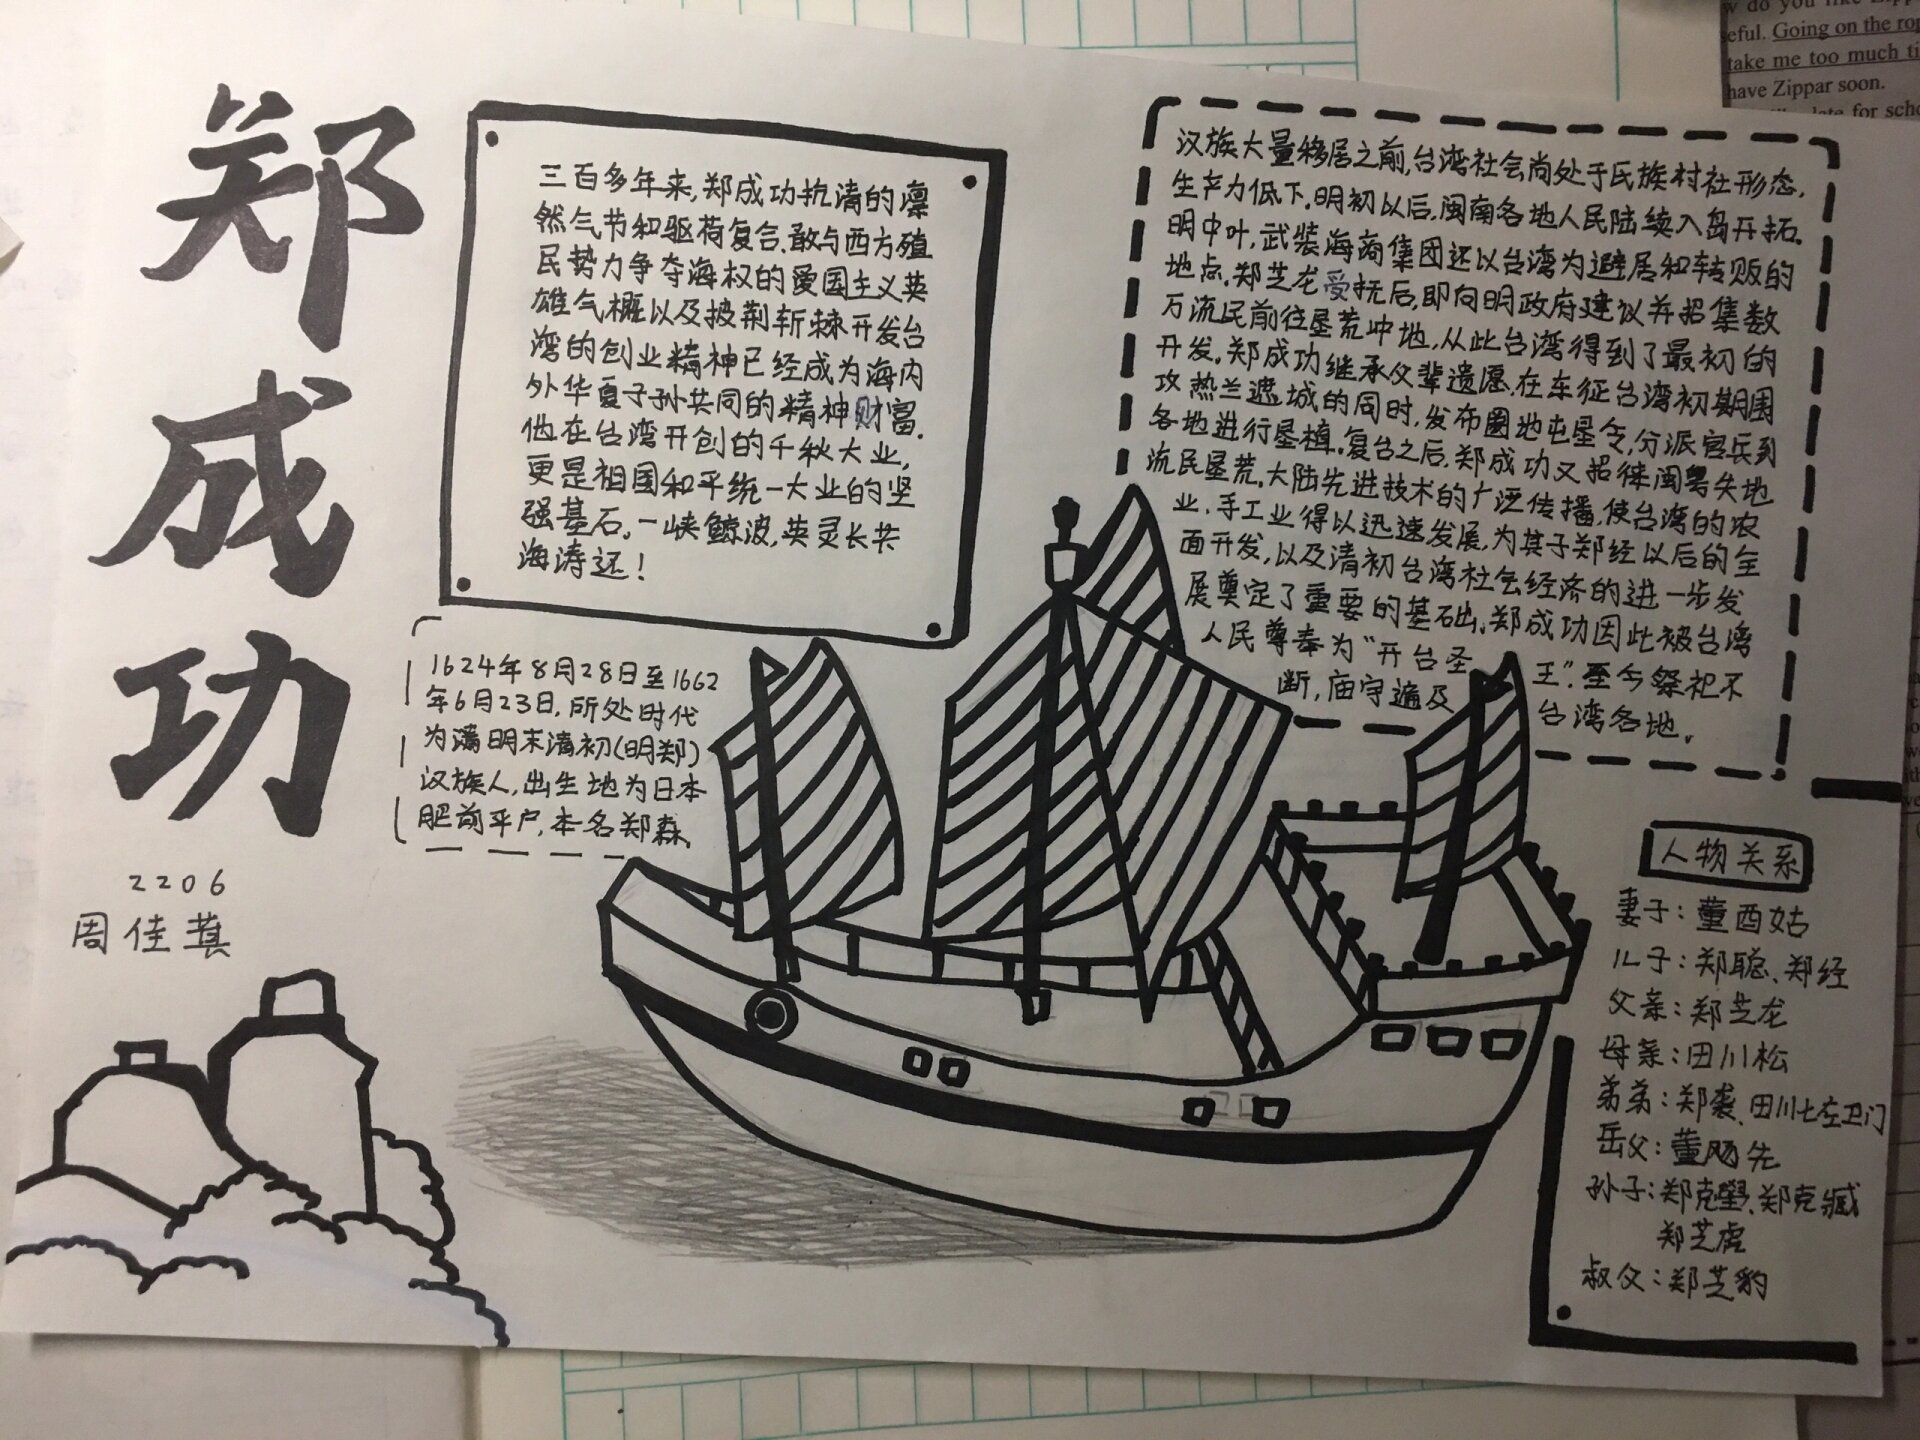 郑成功
2206
周佳蕻
三百多年来,郑成功抗清的凛
然气节和驱荷复台.敢与西方殖
民势力争夺海权的爱国主义英
雄气概以及披荆斩棘开发台
湾的创业精神已经成为海内
外华夏子孙共同的精神财富.
他在台湾开创的千秋大业,
更是祖国和平统一大业的坚
强基石。一峡鲸波,英灵长共
海涛还!
1624年8月28日至1662
年6月23日,所处时代
为满明末清初(明郑)
汉族人,出生地为日本
肥前平户,本名郑森。
汉族大量移居之前,台湾社会尚处于民族村社形态,
生产力低下。明初以后,闽南各地人民陆续入岛开拓。
明中叶,武装海商集团还以台湾为避居和转贩的
地点。郑芝龙受抚后,即向明政府建议并招集数
万流民前往垦荒冲地,从此台湾得到了最初的
开发。郑成功继承父辈遗愿.在东征台湾初期围
攻热兰遮城的同时,发布圈地屯垦令,分派官兵到
各地进行垦植。复台之后,郑成功又招徕闽粤失地
流民垦荒。大陆先进技术的广泛传播,使台湾的农
业,手工业得以迅速发展,为其子郑经以后的全
面开发,以及清初台湾社会经济的进一步发
展奠定了重要的基础。郑成功因此被台湾
人民尊奉为“开台圣王”.至今祭祀不
断,庙宇遍及台湾各地。
人物关系
妻子:董酉姑
儿子:郑聪、郑经
父亲:郑芝龙
母亲:田川松
弟弟:郑袭、田川七左卫门
岳父:董飏先
孙子:郑克塽、郑克臧
郑芝虎
叔父:郑芝豹
eful. Going on the rop
take me too much ti
have Zippar soon.